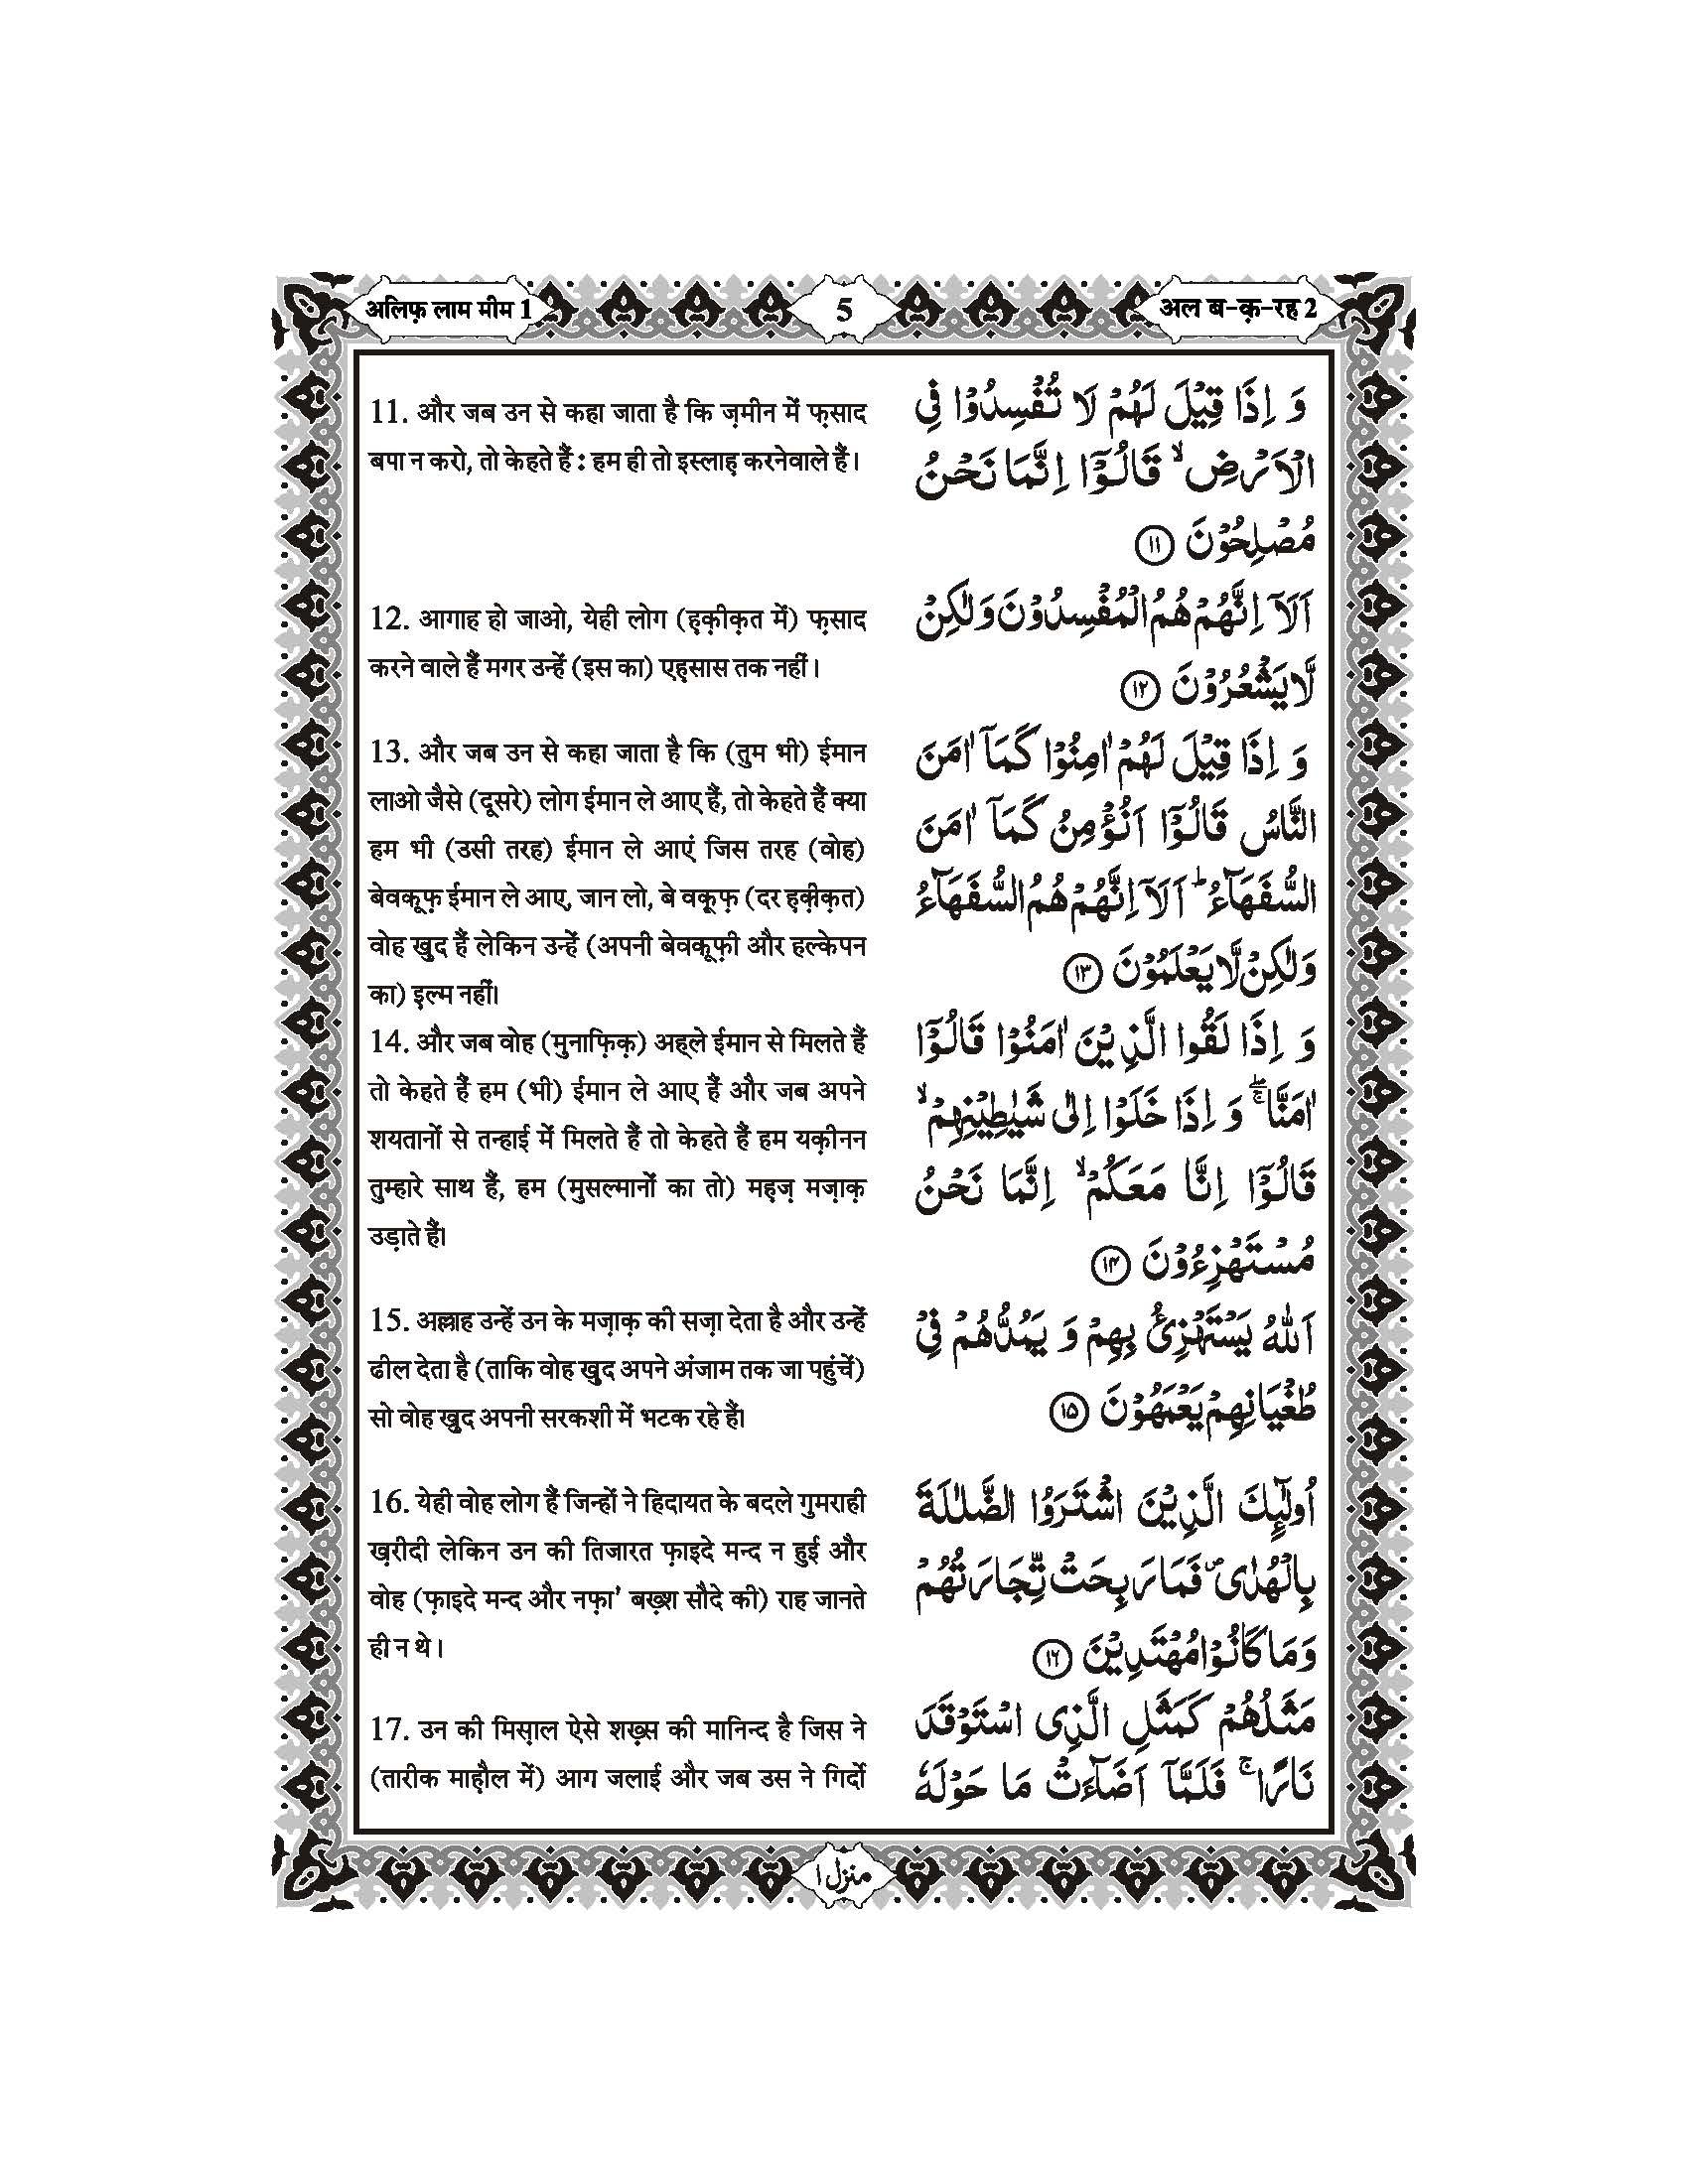 अलिफ़ लाम मीम 1
5
अल ब-क़-रह 2
11. और जब उन से कहा जाता है कि ज़मीन में फ़साद
बपा न करो, तो केहते हैं : हम ही तो इस्लाह़ करनेवाले हैं।
12. आगाह हो जाओ, येही लोग (ह़क़ीक़त में) फ़साद
करने वाले हैं मगर उन्हें (इस का) एह़सास तक नहीं।
13. और जब उन से कहा जाता है कि (तुम भी) ईमान
लाओ जैसे (दूसरे) लोग ईमान ले आए हैं, तो केहते हैं क्या
हम भी (उसी तरह) ईमान ले आएं जिस तरह (वोह)
बेवक़ूफ़ ईमान ले आए, जान लो, बे वक़ूफ़ (दर ह़क़ीक़त)
वोह ख़ुद हैं लेकिन उन्हें (अपनी बेवक़ूफ़ी और हल्केपन
का) इ़ल्म नहीं।
14. और जब वोह (मुनाफ़िक़) अह्ले ईमान से मिलते हैं
तो केहते हैं हम (भी) ईमान ले आए हैं और जब अपने
शयतानों से तन्हाई में मिलते हैं तो केहते हैं हम यक़ीनन
तुम्हारे साथ हैं, हम (मुसल्मानों का तो) मह़ज़ मज़ाक़
उड़ाते हैं।
15. अल्लाह उन्हें उन के मज़ाक़ की सज़ा देता है और उन्हें
ढील देता है (ताकि वोह ख़ुद अपने अंजाम तक जा पहुंचें)
सो वोह ख़ुद अपनी सरकशी में भटक रहे हैं।
16. येही वोह लोग हैं जिन्हों ने हिदायत के बदले गुमराही
ख़रीदी लेकिन उन की तिजारत फ़ाइदे मन्द न हुई और
वोह (फ़ाइदे मन्द और नफ़ा' बख़्श सौदे की) राह जानते
ही न थे।
17. उन की मिस़ाल ऐसे शख़्स की मानिन्द है जिस ने
(तारीक माह़ौल में) आग जलाई और जब उस ने गिर्दो
وَ اِذَا قِیْلَ لَهُمْ لَا تُفْسِدُوْا فِی
الْاَرْضِ ۙ قَالُوْۤا اِنَّمَا نَحْنُ
مُصْلِحُوْنَ ﴿۱۱﴾
اَلَاۤ اِنَّهُمْ هُمُ الْمُفْسِدُوْنَ وَلٰكِنْ
لَّا یَشْعُرُوْنَ ﴿۱۲﴾
وَ اِذَا قِیْلَ لَهُمْ اٰمِنُوْا كَمَاۤ اٰمَنَ
النَّاسُ قَالُوْۤا اَنُؤْمِنُ كَمَاۤ اٰمَنَ
السُّفَهَآءُ ؕ اَلَاۤ اِنَّهُمْ هُمُ السُّفَهَآءُ
وَلٰكِنْ لَّا یَعْلَمُوْنَ ﴿۱۳﴾
وَ اِذَا لَقُوا الَّذِیْنَ اٰمَنُوْا قَالُوْۤا
اٰمَنَّا ۚۖ وَ اِذَا خَلَوْا اِلٰی شَیٰطِیْنِهِمْ ۙ
قَالُوْۤا اِنَّا مَعَكُمْ ۙ اِنَّمَا نَحْنُ
مُسْتَهْزِءُوْنَ ﴿۱۴﴾
اَللّٰهُ یَسْتَهْزِئُ بِهِمْ وَ یَمُدُّهُمْ فِیْ
طُغْیَانِهِمْ یَعْمَهُوْنَ ﴿۱۵﴾
اُولٰٓئِكَ الَّذِیْنَ اشْتَرَوُا الضَّلٰلَةَ
بِالْهُدٰی ۪ فَمَا رَبِحَتْ تِّجَارَتُهُمْ
وَمَا كَانُوْا مُهْتَدِیْنَ ﴿۱۶﴾
مَثَلُهُمْ كَمَثَلِ الَّذِی اسْتَوْقَدَ
نَارًا ۚ فَلَمَّاۤ اَضَآءَتْ مَا حَوْلَهٗ
منزل ۱